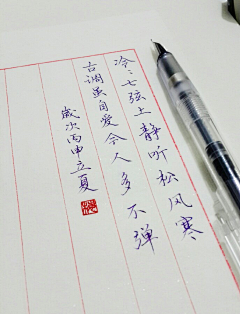 冷〻七弦上静听松风寒
古调虽自爱今人多不弹
岁次丙申立夏